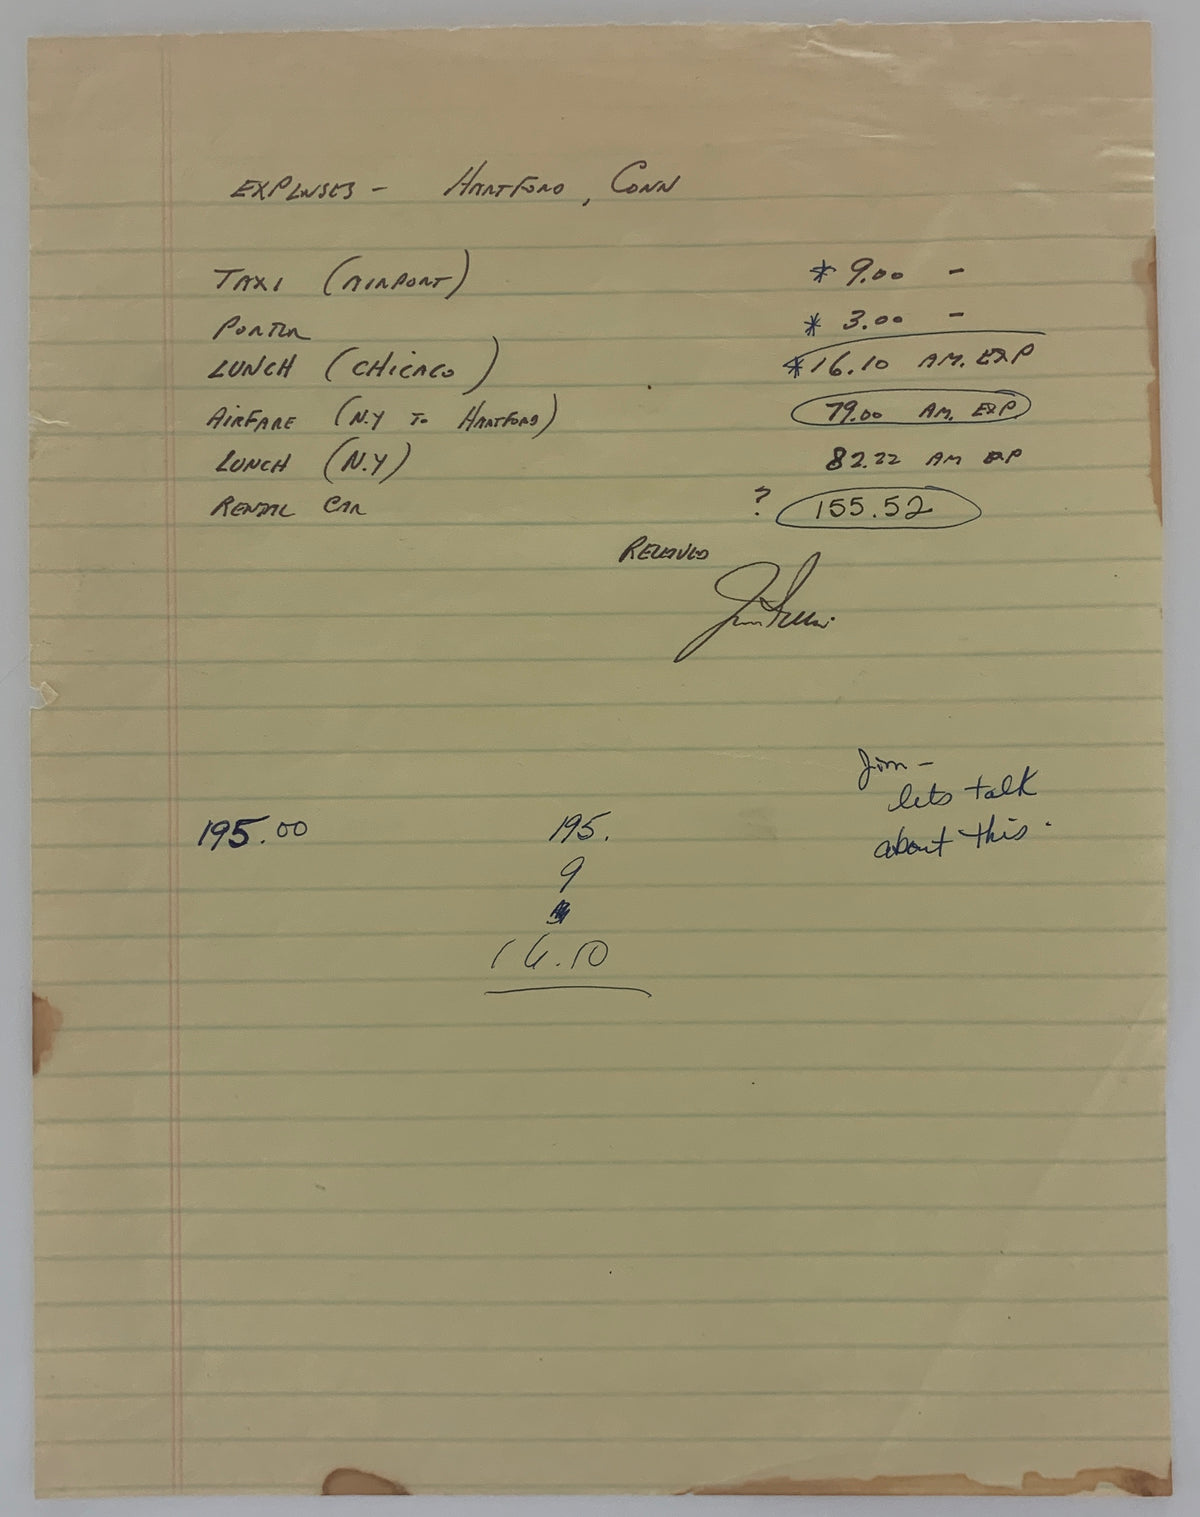 EXPENSES - HARTFORD, CONN
TAXI (AIRPORT) * 9.00 -
PORTER * 3.00 -
LUNCH (CHICAGO) * 16.10 AM. EXP
AIRFARE (N.Y TO HARTFORD) 79.00 AM. EXP
LUNCH (N.Y) 82.22 AM EXP
RENTAL CAR ? 155.52
RECEIVED
Jim -
lets talk
about this.
195.00 195.
9
16.10